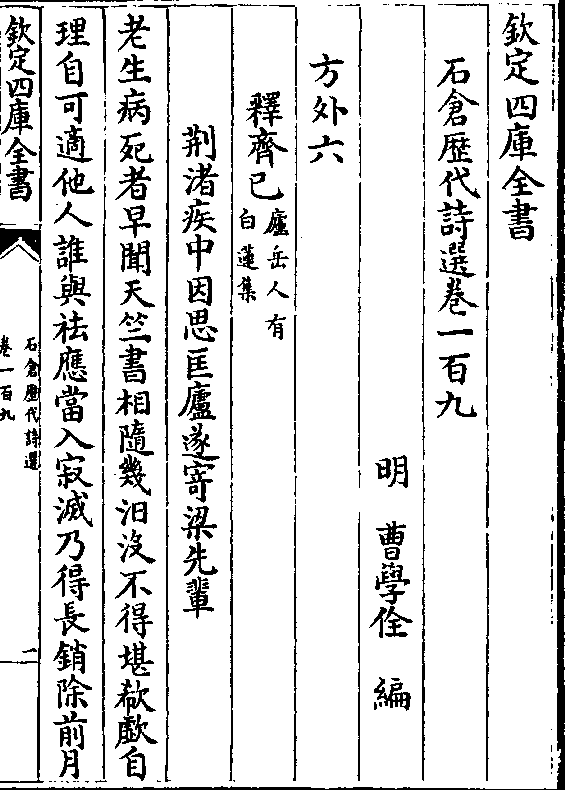 欽定四庫全書
石倉歴代詩選卷一百九
明　曹學佺　編
方外六
釋齊己廬岳人有
白蓮集
荆渚疾中因思匡廬遂寄梁先輩
老生病死者早聞天竺書相隨幾汨沒不得堪欷歔自
理自可適他人誰與祛應當入寂滅乃得長銷除前月
欽定四庫全書
石倉歴代詩選
卷一百九
一